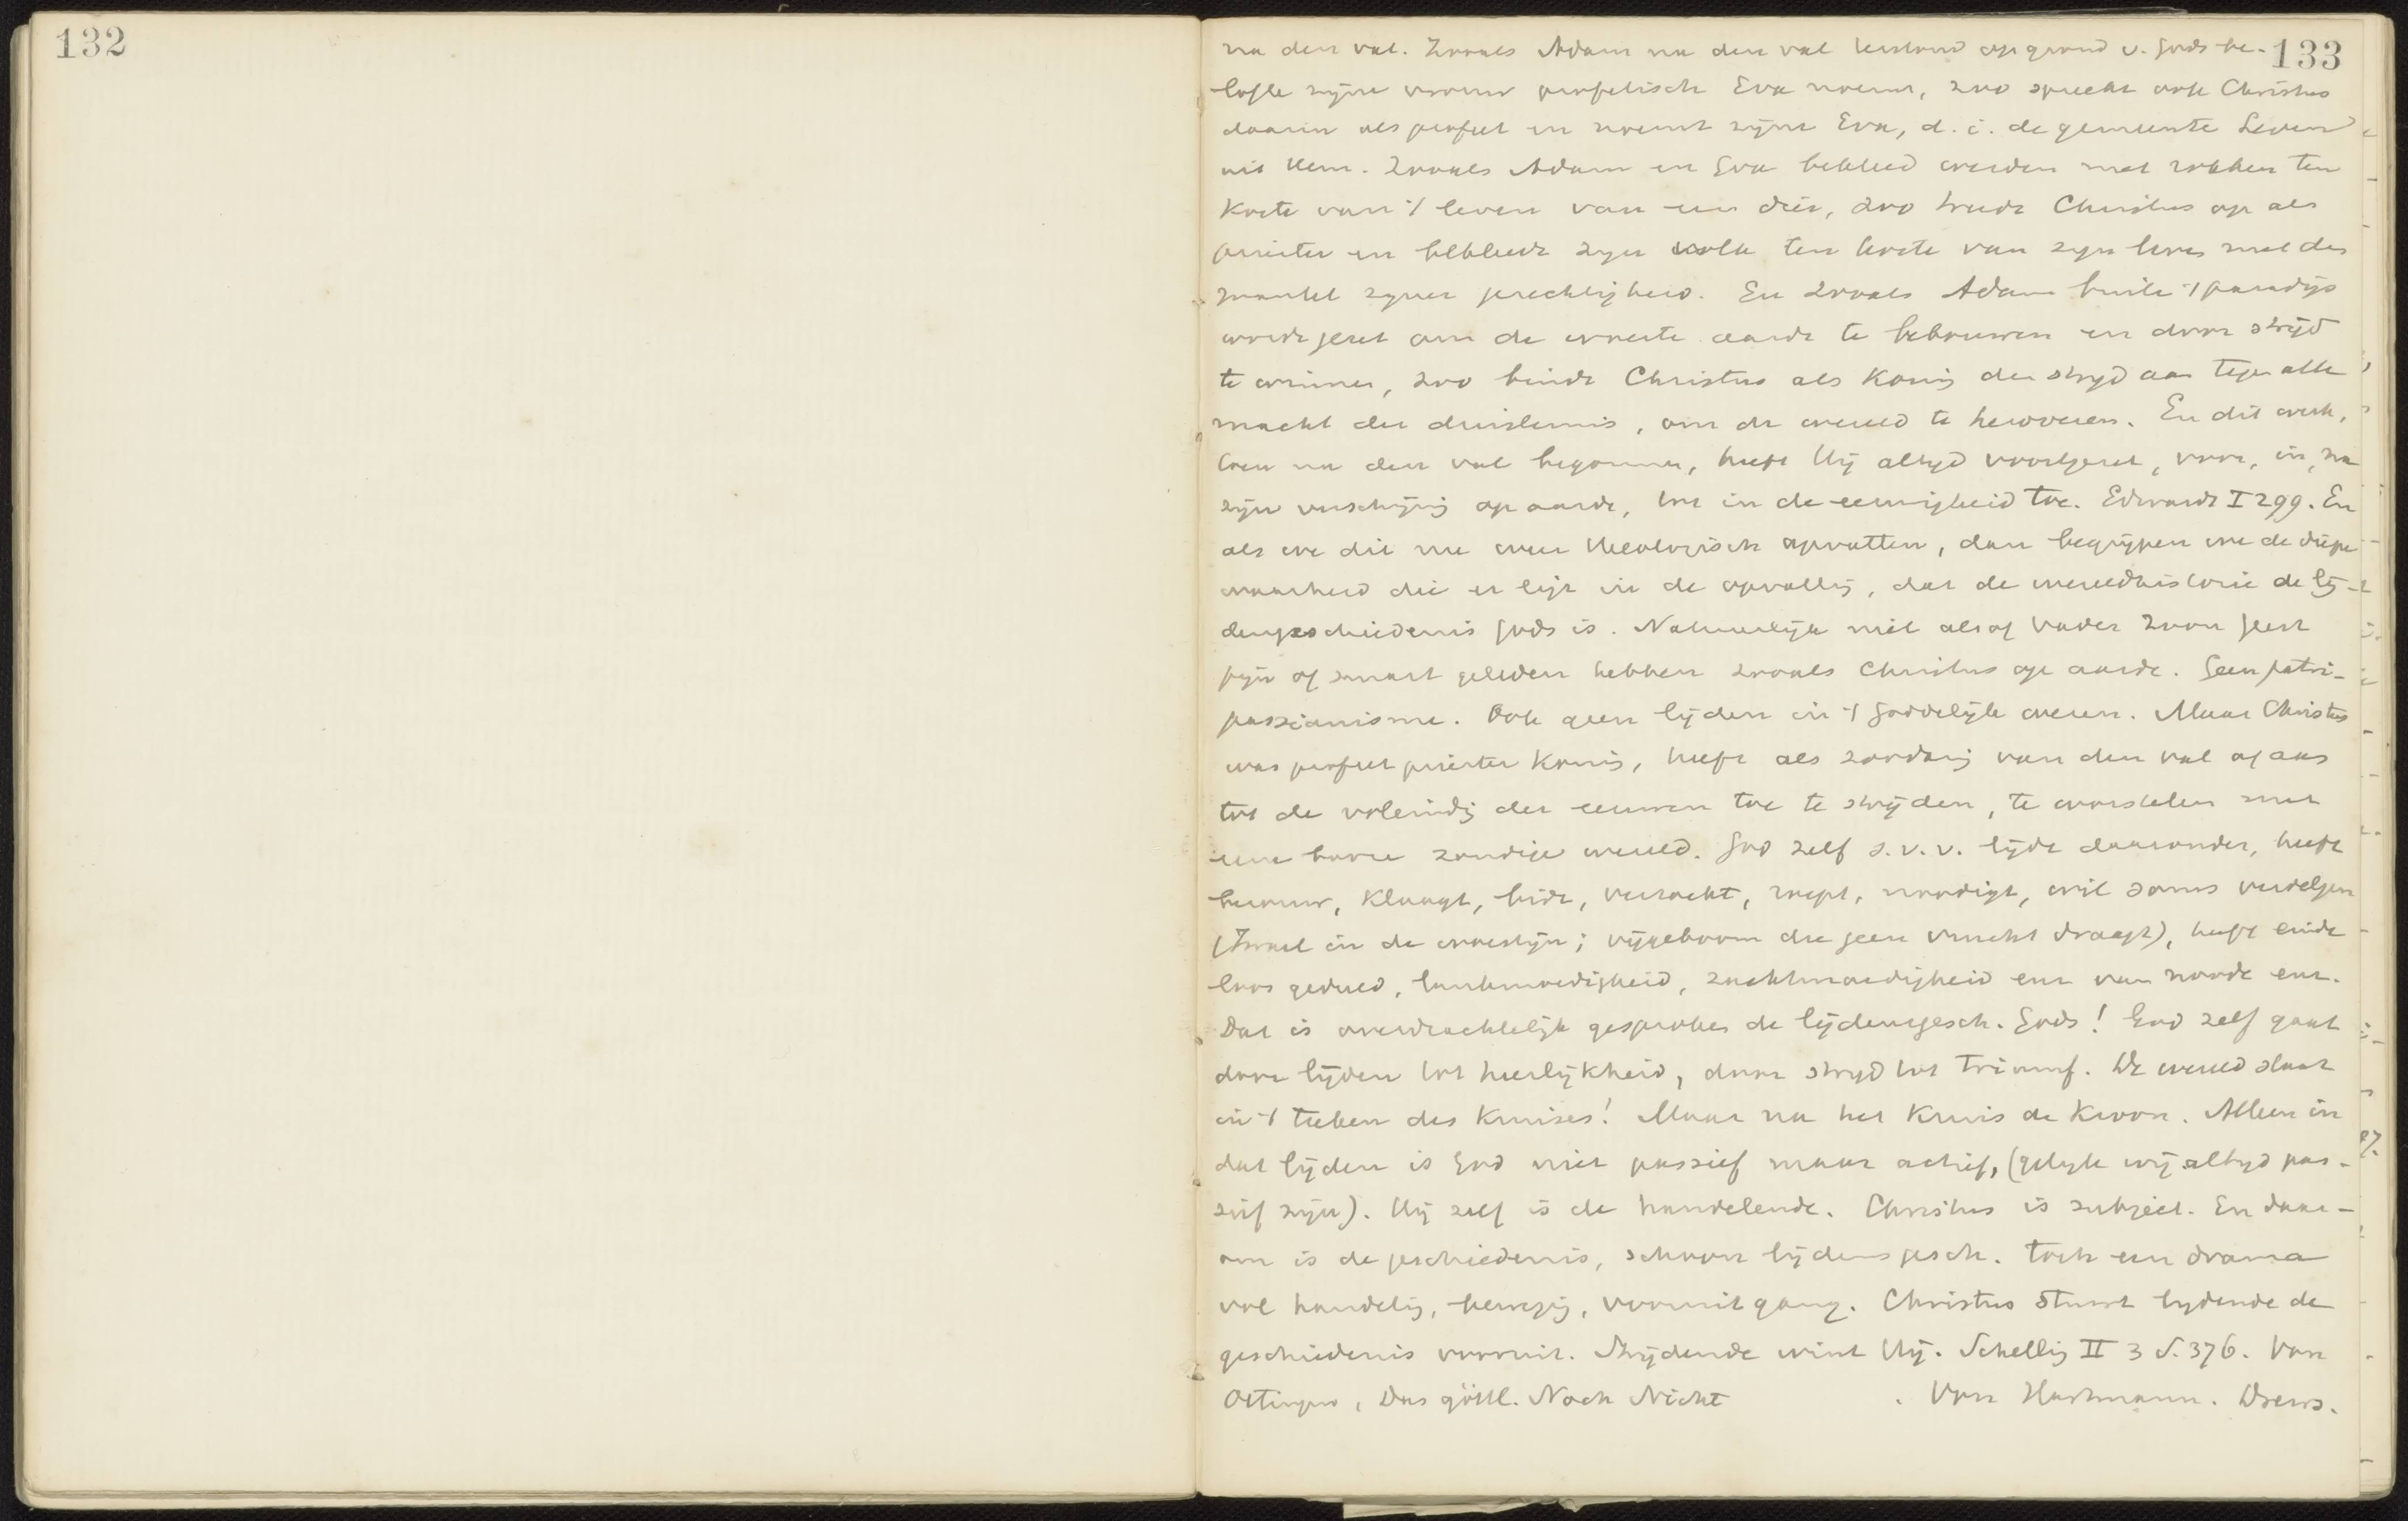 132
133
na den val. Zooals Adam na den val terstond op grond v. Gods be-
lofte zijne vrouw profetisch Eva noemt, zoo spreekt ook Christus
daarin als profeet en noemt zijne Eva, d. i. de gemeente Leven
uit Hem. Zooals Adam en Eva bekleed werden met rokken ten
koste van 't leven van een dier, zoo treedt Christus op als
priester en bekleedt zijn volk ten koste van zijn leven met den
mantel zijner gerechtigheid. En zooals Adam buiten 't paradijs
wordt gezet om de woeste aarde te bebouwen en door strijd
te winnen, zoo bindt Christus als Koning den strijd aan tegen alle
macht der duisternis, om de wereld te heroveren. En dit werk,
toen na den val begonnen, heeft Hij altijd voortgezet, voor, in, na
zijn verschijning op aarde, tot in de eeuwigheid toe. Edwards I 299. En
als we dit nu weer theologisch opvatten, dan begrijpen we de diepe
waarheid die er ligt in de opvatting, dat de wereldhistorie de lij-
densgeschiedenis Gods is. Natuurlijk niet alsof Vader Zoon Geest
pijn of smart geleden hebben zooals Christus op aarde. Geen patri-
passianisme. Ook geen lijden in 't Goddelijke wezen. Maar Christus
was profeet priester Koning, heeft als zoodanig van den val af aan
tot de voleindig der eeuwen toe te strijden, te worstelen met
eene booze zondige wereld. God zelf s. v. v. lijdt daaronder, heeft
berouw, klaagt, bidt, verzoekt, roept, noodigt, wil soms verdelgen
(Israel in de woestijn; vijgeboom die geen vrucht draagt), heeft einde
loos geduld, lankmoedigheid, zachtmoedigheid enz. van noode enz.
Dat is overdrachtelijk gesproken de lijdensgesch. Gods! God zelf gaat
door lijden tot heerlijkheid, door strijd tot triumf. De wereld staat
in 't teeken des Kruises! Maar na het Kruis de Kroon. Alleen in
dat lijden is God niet passief maar actief, (gelijk wij altijd pas-
sief zijn). Hij zelf is de handelende. Christus is subject. En daar-
om is de geschiedenis, schoon lijdensgesch. toch een drama
vol handelig, bewegig, vooruitgang. Christus stuurt lijdende de
geschiedenis vooruit. Strijdende wint Hij. Schelling II 3 S. 376. Von
Oettingen, Das göttl. Noch Nicht . Von Hartmann. Drews.